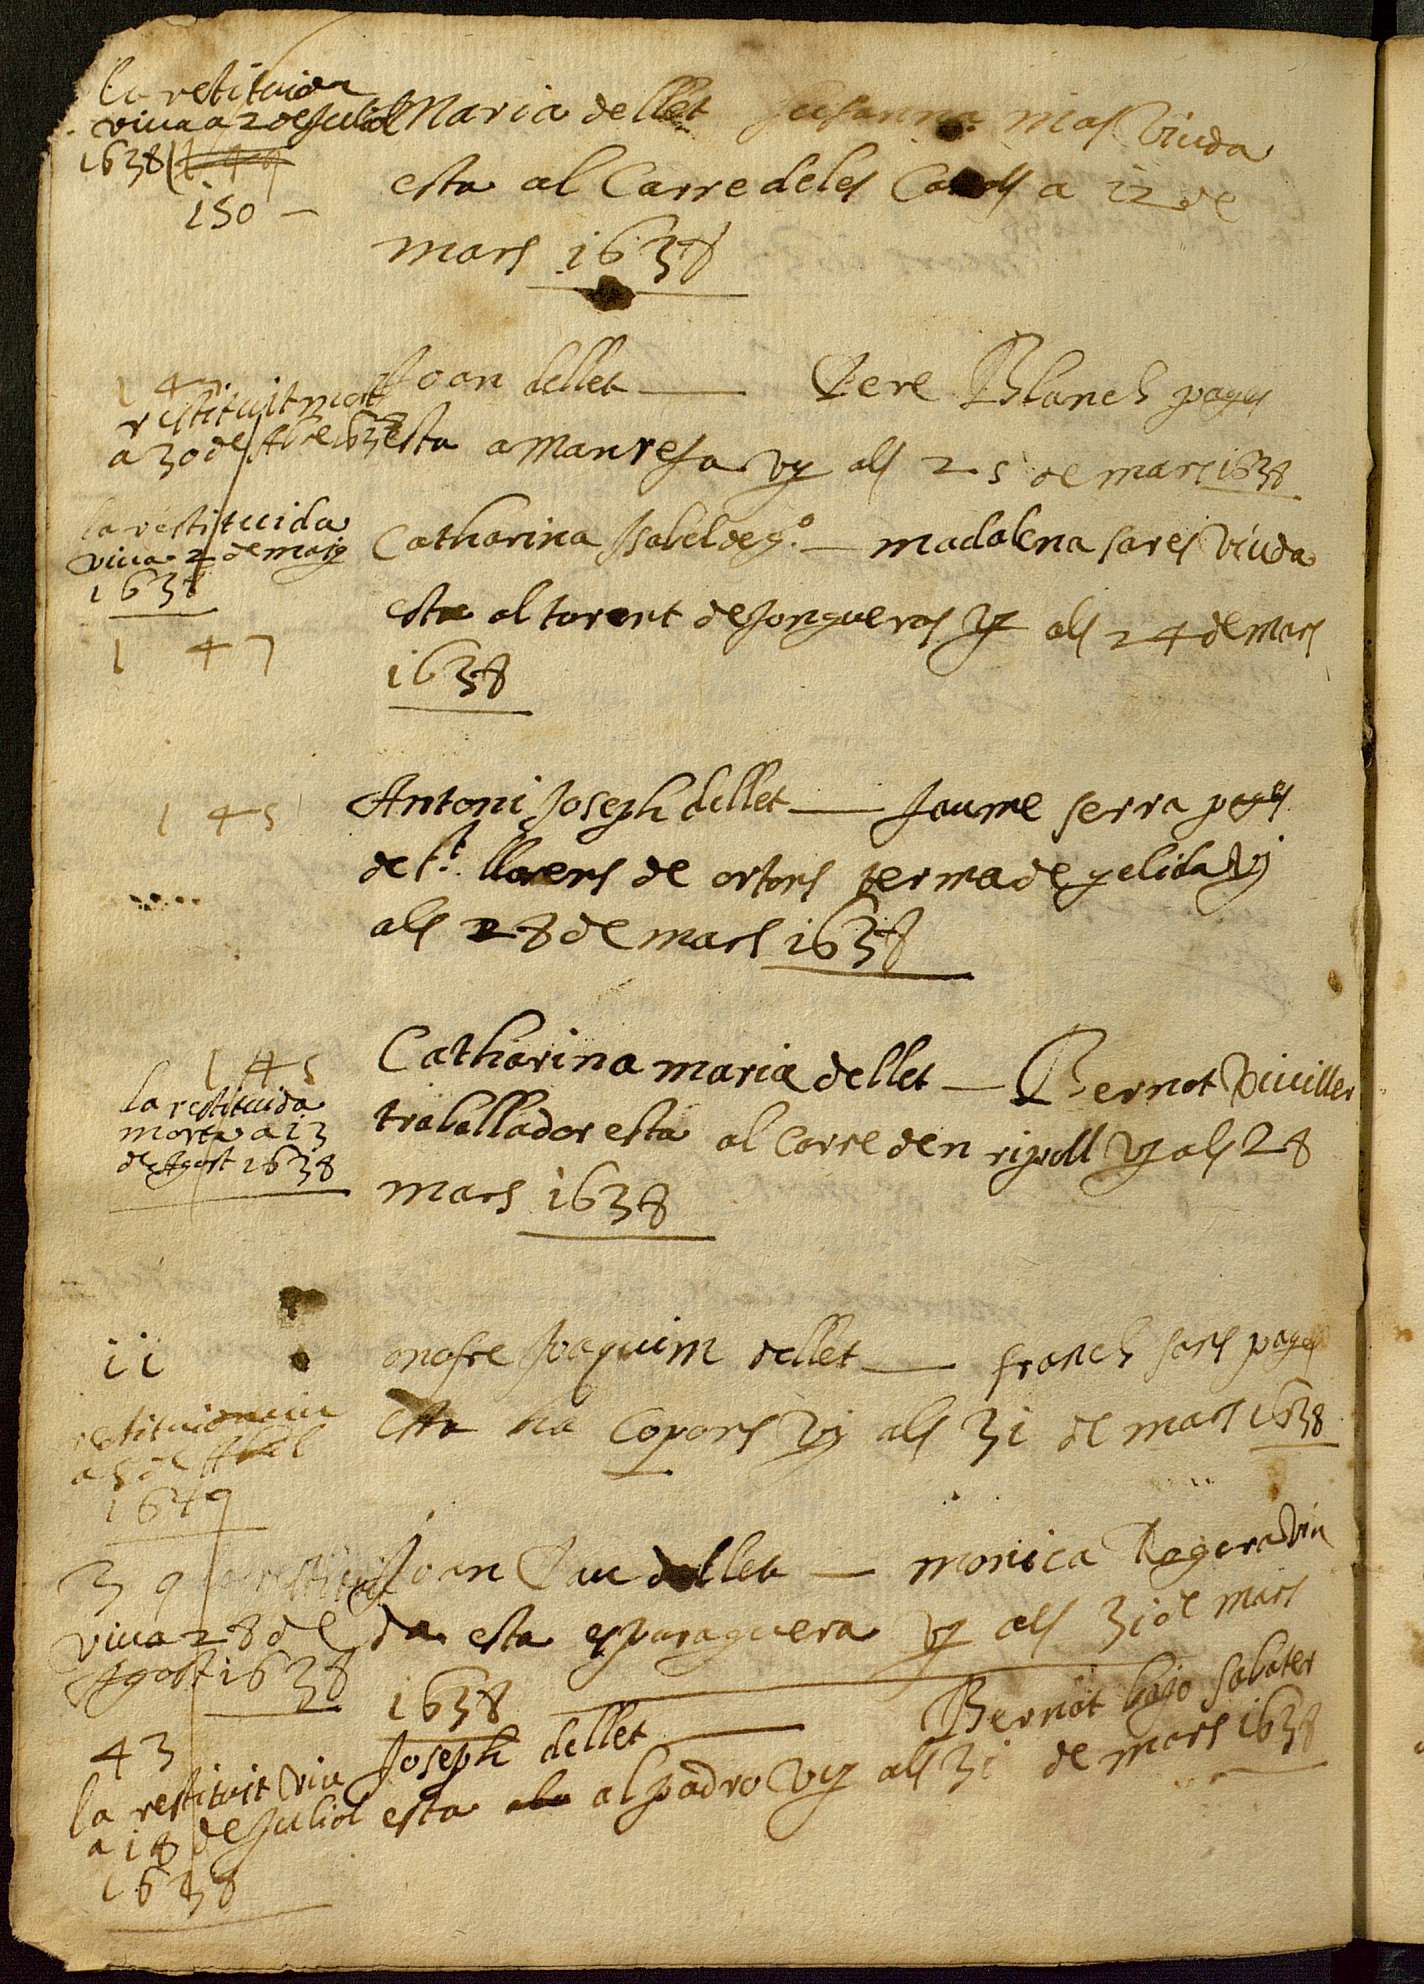 la restituida
viua a 2 de Juliol
1638
150 —
Maria de llet Jusanna mas Viuda
esta al Carre deles a 12 de
mars 1638
147
restituit mort
a 30 de Abre 1638
Joan dellet — Pere Blanch pages
esta a Manresa vy als 25 de mars 1638
la restituida
viua 2 de maig
1638
1 47
Catharina Isabel de g.º — madalena sares Viuda
esta al torent de Jongueras vy als 24 de mars
1638
1 45
Antoni Joseph dellet — Jaume serra pages
de s.t llorens de ortons terma de gelida vy
als 28 de mars 1638
1 45
la restituida
morta a 13
de Agost 1638
Catharina maria dellet — Bernot Viuiller
traballador esta al Carre den ripoll vy als 28
mars 1638
11
restitui
a 5 de Abril
1649
onofre Joaquim dellet — franch sors pages
esta ha Copons vy als 31 de mars 1638
39 la restituit
viua 28 de
Agost 1638
Joan Pau dellet — monica Rogera Viu
da esta esparaguera vy als 31 de mars
1638
43
la restituit viu
a 18 de Juliol
1638
Joseph dellet — Bernat bojo sabater
esta al padro vy als 31 de mars 1638